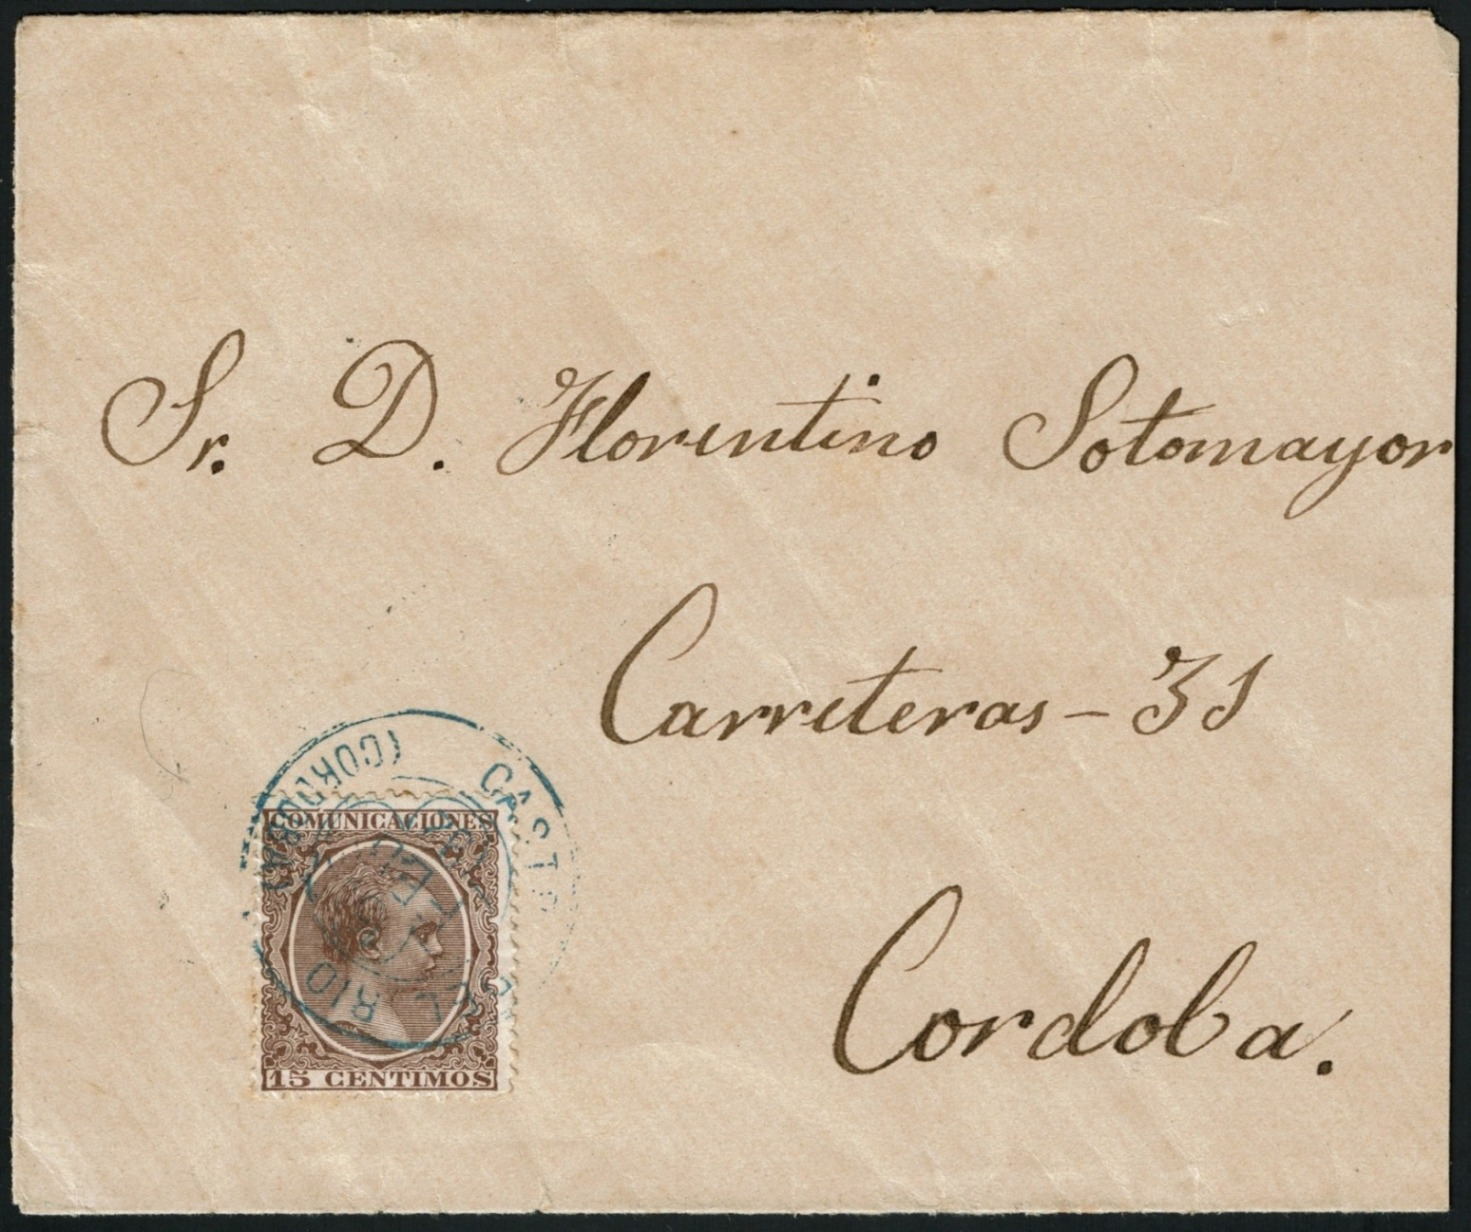 Sr. D. Florentino Sotomayor
Carreteras - 31
Cordoba.
COMUNICACIONES
15 CENTIMOS
CASTRO DEL RIO
(CORDOBA)